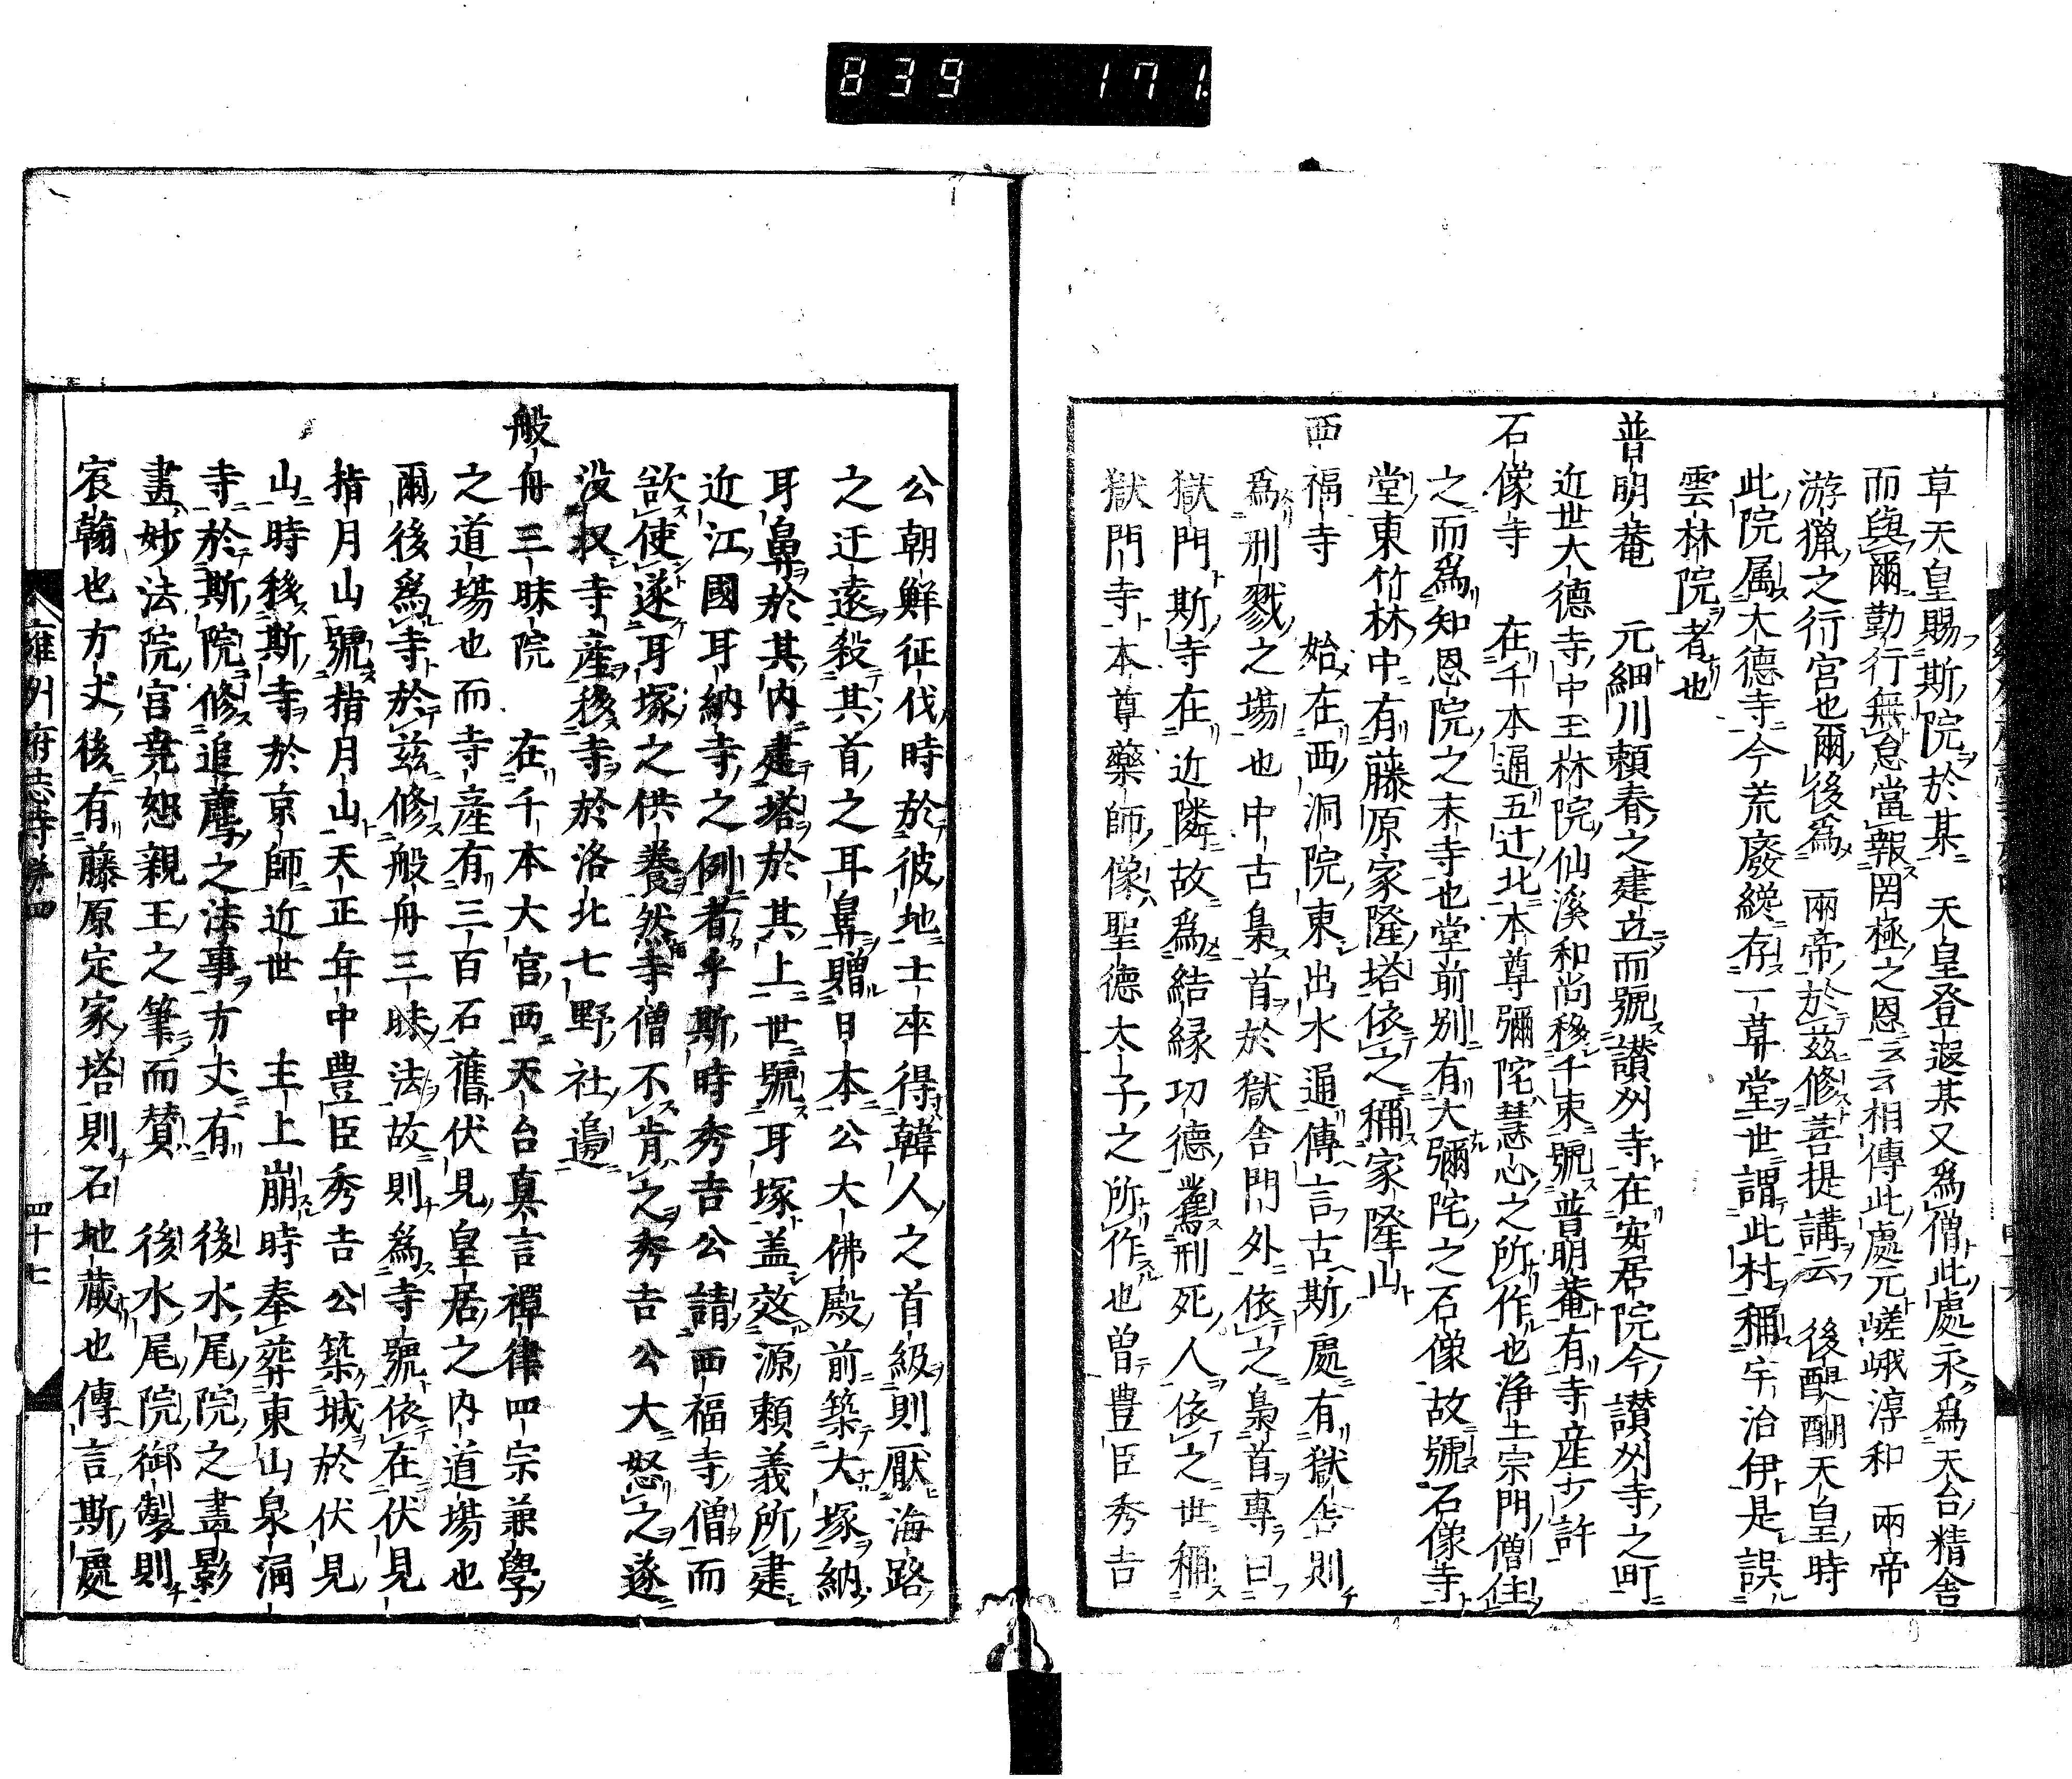 839 171
草天皇賜斯院於某 天皇登遐某又爲僧此處永爲天台精舍
而與爾勤行無怠當報罔極之恩云云相傳此處元嵯峨淳和 兩帝
游獵之行宮也爾後爲 兩帝於茲修菩提講云 後醍醐天皇時
此院属大德寺今荒廢纔存一草堂世謂此村稱宇治伊是誤
雲林院者也
普明菴 元細川頼春之建立而號讃州寺在安居院今讃州寺之町
近世大德寺中王林院仙溪和尚移千束號普明菴有寺産少許
石像寺 在千本通五辻北本尊彌陀慧心之所作也浄土宗門僧住
之而爲知恩院之末寺也堂前別有大彌陀之石像故號石像寺
堂東竹林中有藤原家隆塔依之稱家隆山
西福寺 始在西洞院東出水通傳言古斯處有獄舎則
爲刑戮之場也中古梟首於獄舎門外依之梟首專曰
獄門斯寺在近隣故爲結縁功德薦刑死人依之世稱
獄門寺本尊藥師像聖德太子之所作也曽豊臣秀吉
公朝鮮征伐時於彼地士卒得韓人之首級則厭海路
之迂遠殺其首之耳鼻贈日本公大佛殿前築大塚納
耳鼻於其内建塔於其上世號耳塚盖效源頼義所建
近江國耳納寺之例者乎斯時秀吉公請西福寺僧而
欲使遂耳塚之供養然寺僧不肯之秀吉公大怒之遂
没収寺産移寺於洛北七野社邊
般舟三昧院 在千本大宮西天台真言禪律四宗兼學
之道場也而寺産有三百石舊伏見皇居之内道場也
爾後爲寺於茲修般舟三昧法故則爲寺號依在伏見
指月山號指月山天正年中豊臣秀吉公築城於伏見
山時移斯寺於京師近世 主上崩時奉葬東山泉涌
寺於斯院修追薦之法事方丈有 後水尾院之畫影
畫妙法院宮尭恕親王之筆而賛 後水尾院御製則
宸翰也方丈後有藤原定家塔則石地蔵也傳言斯處
雍州府志寺院四 四十七